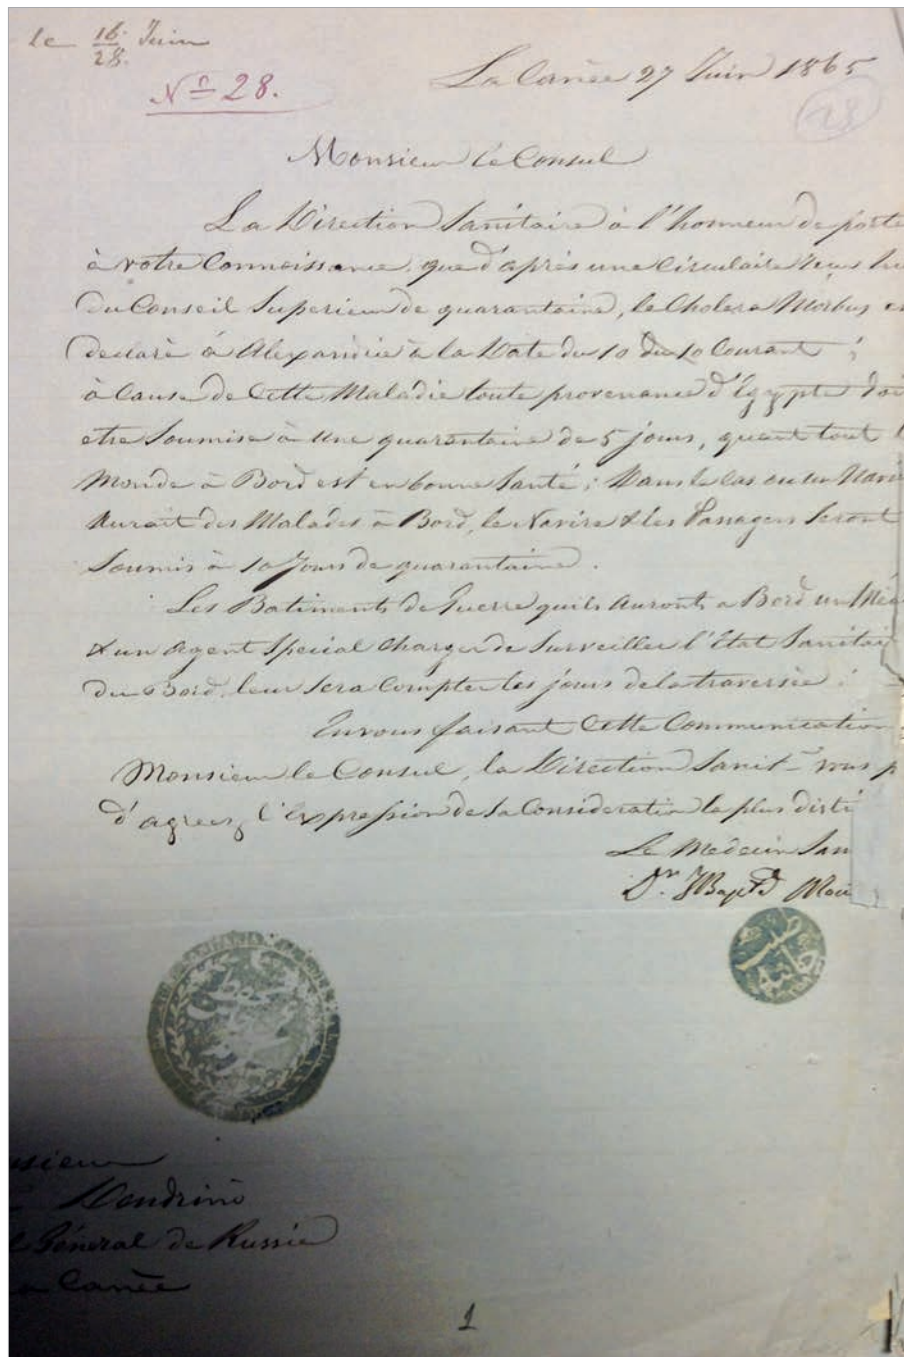 le 16/28. Juin
La Canée 27 Juin 1865
Nº 28.
28
Monsieur le Consul
La Direction Sanitaire à l'honneur de porte
à votre Connaissance que d'après une Circulaire
du Conseil Superieur de quarantaine, le Cholera Morbus
declarè à Alexandrie à la Date du 10 du 10 Courant ;
à Cause de Cette Maladie toute provenance d'Egypte doi
etre Soumise à une quarantaine de 5 jours, quant tout l
Monde à Bord est en bonne Santé ; Dans le Cas ou un Navi
Aurait des Malades à Bord, le Navire & les Passagers Seront
Soumis à 10 Jours de quarantaine.
Les Batiments de Guerre quils Auronts a Bord un Méd
& un Agent Special Charger de Surveiller l'Etat Sanitai
du Bord, leur Sera Compter les jours de la traversèe.
En vous faisant Cette Communication
Monsieur le Consul, la Direction Sanit vous p
d'agreez l'Expression de Sa Consideration la plus disti
Le Medecin San
Dr. JBapt
sieur
Dendrino
l Géneral de Russie
a Canèe
1